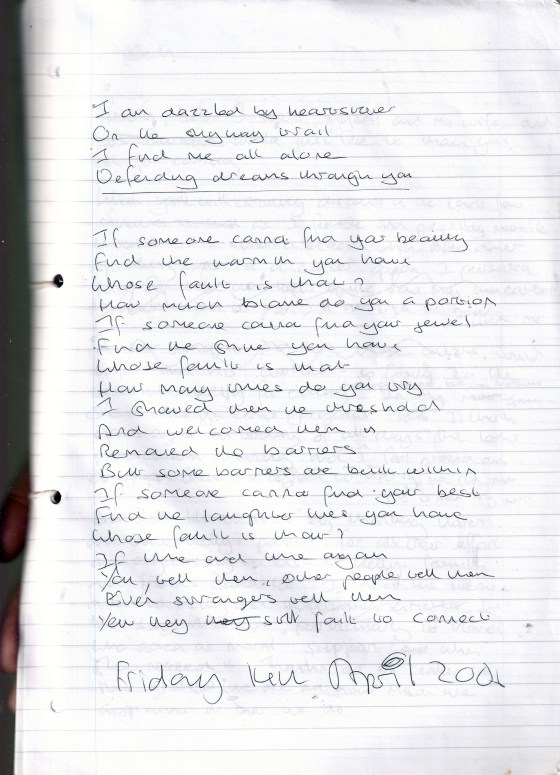 I am dazzled by
On the skyway trail
I find me all alone
Defending dreams through you
If someone cannot find your beauty
Find the warmth you have
Whose fault is that?
How much blame do you a portion
If someone cannot find your jewel
Find the shine you have
Whose fault is that
How many times do you try
I showed them the threshold
And welcomed them in
Removed the barriers
But some barriers are built within
If someone cannot find your best
Find the laughter lines you have
Whose fault is that?
If time and time again
You tell them, other people tell them
Even strangers tell them
Yet they still fail to connect
Friday April 2001